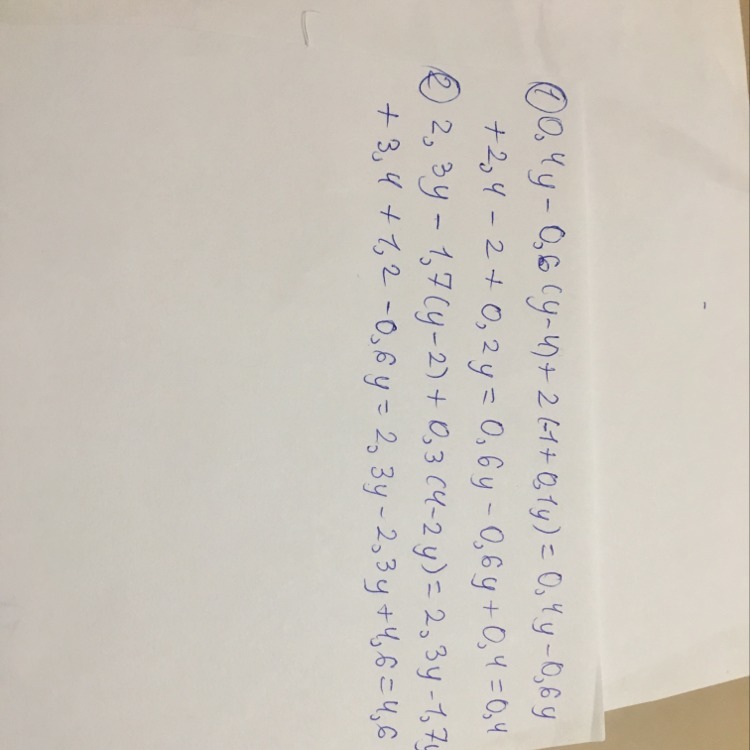 ① 0,4y-0,6(y-4)+2(-1+0,1y)=0,4y-0,6y
+2,4-2+0,2y=0,6y-0,6y+0,4=0,4
② 2,3y-1,7(y-2)+0,3(4-2y)=2,3y-1,7y
+3,4+1,2-0,6y=2,3y-2,3y+4,6=4,6